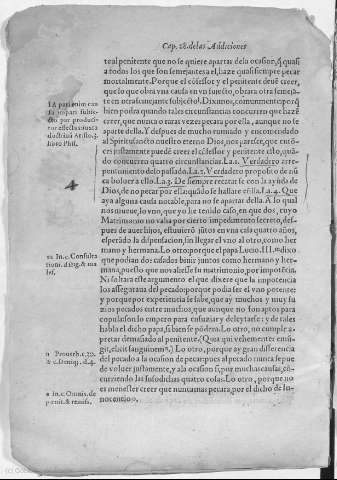 Cap. 28. de las Addiciones
te al penitente que no se quiere apartar dela ocasiõ, q̃ quasi
a todos los que son semejantes a el, haze quasi siempre pecar
mortalmente. Porque el cõfessor y el penitente deuẽ creer,
que lo que obra vna causa en vn suiecto, obrara otra semejã
te en otra semejante subjecto l. Diximos, comunmente porq̃
bien podra quando tales circunstancias concurren que haze
creer, que nunca o raras vezes pecara por ella, aunque no se
aparte della. Y despues de mucho rumiado y encomendado
al Spiritu sancto nuestro eterno Dios, nos paresce, que entõ
ces justamente puede creer el cõfessor y penitente esto, quã
do concurren quatro circunstancias. La .1. Verdadero arre-
pentimiento delo passado. La .2. Verdadero proposito de nũ
ca boluer a ello. La .3. De siempre recatarse con la ayuda de
Dios, de no pecar por esta quãdo se hallare en ella. La .4. Que
aya alguna causa notable, para no se apartar della. A lo qual
nos mueue, lo vno, que yo he tenido caso, en que dos, cuyo
Matrimonio no valia por cierto impedimento secreto, des-
pues de auer hijos, estuuierõ jũtos en vna casa quatro años,
esperãdo la dispensacion, sin llegar el vno al otro, como her
mano y hermana. Lo otro, porque el papa Lucio. III. m dixo
que podian dos casados biuir juntos como hermano y her-
mana, puesto que nos alesse su matrimonio, por impotẽcia.
Ni saltara este argumento el que dixere que la impotencia
los assegurara del pecado: porque podia ser el vno potente
y porque por experiencia se sabe, que ay muchos y muy fu
zios pecados entre muchos, que aunque no son aptos para
copula, son lo empero para ensuziar y deleytarse: y de tales
habla el dicho papa, si bien se põdera. Lo otro, no cumple a-
pretar demasiado al penitente. (Qua qui vehementer emũ-
git, elicit sanguinem n.) Lo otro, porque ay gran differencia
del pecado a la ocasion de pecar: pues al pecado nunca se pue
de voluer justamente, y a la ocasion si, por muchas causas, cõ
curriendo las susodichas quatro cosas. Lo otro, porque no
es menester creer que nunca mas pecara, por el dicho de In-
nocencio o.
l A pari enim cau
sa in pari subie-
cto par produci-
tur effectus iuxta
doctrinã Aristo. 3.
libro Phis.
4
m In. c. Consulta
tioni. d. frig. & ma
lef.
n Prouerb. c. 30.
& c. Deniq;. d. 4.
o In. c. Omnis. de
pœnit. & remiss.